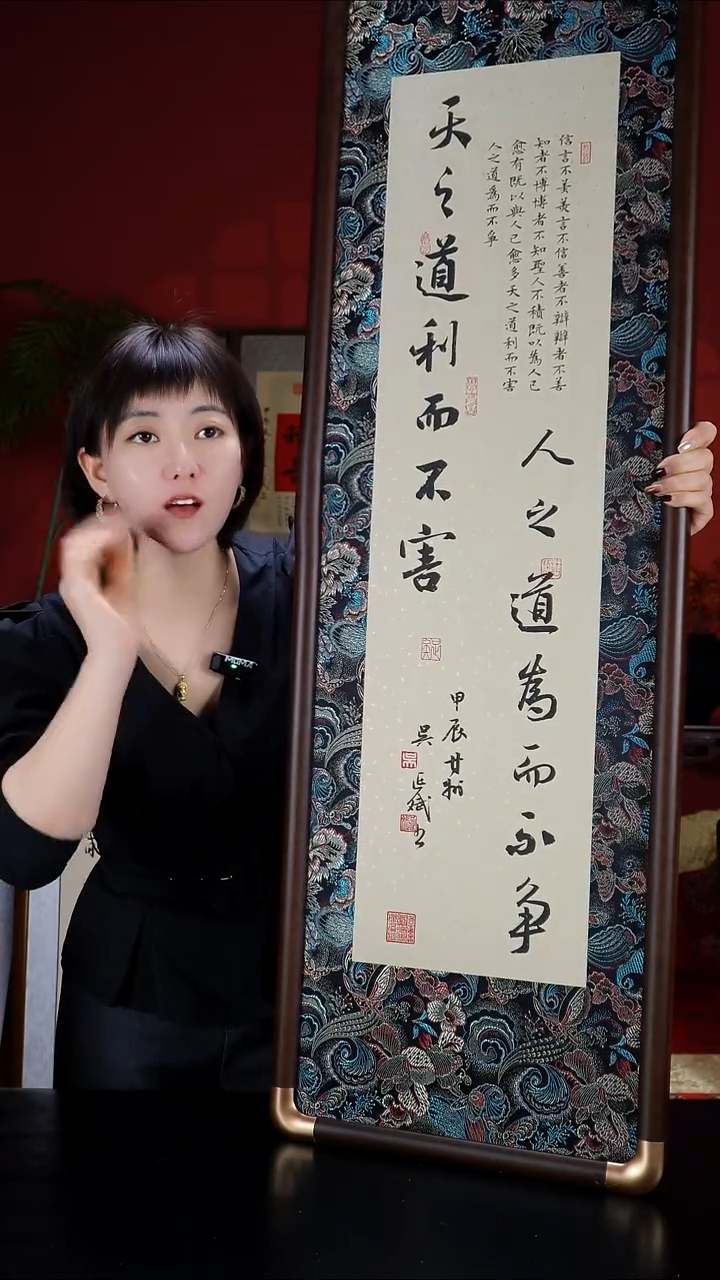 天之道利而不害
人之道為而不争
信言不美美言不信善者不辯辯者不善
知者不博博者不知聖人不積既以為人己
愈有既以與人己愈多天之道利而不害
人之道為而不爭
甲辰甘州
吳
MOMA